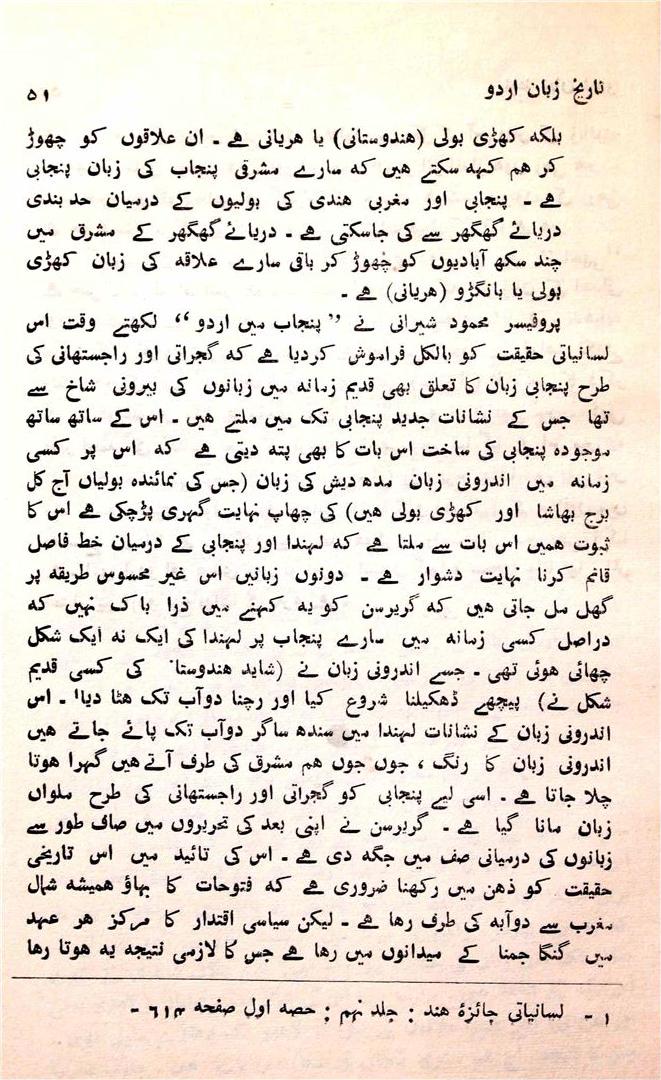 تاریخ زبان اردو
۵۱
بلکہ کھڑی بولی (ھندوستانی) یا ھریانی ہے ۔ ان علاقوں کو چھوڑ
کر ھم کہہ سکتے ھیں کہ سارے مشرقی پنجاب کی زبان پنجابی
ہے ۔ پنجابی اور مغربی ھندی کی بولیوں کے درمیان حد بندی
دریائے گھگھر سے کی جاسکتی ہے ۔ دریائے گھگھر کے مشرق میں
چند سکھ آبادیوں کو چھوڑ کر باقی سارے علاقہ کی زبان کھڑی
بولی یا بانگڑو (ھریانی) ہے ۔
پروفیسر محمود شیرانی نے ”پنجاب میں اردو“ لکھتے وقت اس
لسانیاتی حقیقت کو بالکل فراموش کردیا ہے کہ گجراتی اور راجستھانی کی
طرح پنجابی زبان کا تعلق بھی قدیم زمانہ میں زبانوں کی بیرونی شاخ سے
تھا جس کے نشانات جدید پنجابی تک میں ملتے ھیں ۔ اس کے ساتھ ساتھ
موجودہ پنجابی کی ساخت اس بات کا بھی پتہ دیتی ہے کہ اس پر کسی
زمانہ میں اندرونی زبان مدھ دیش کی زبان (جس کی نمائندہ بولیاں آج کل
برج بھاشا اور کھڑی بولی ھیں) کی چھاپ نہایت گہری پڑچکی ہے اس کا
ثبوت ھمیں اس بات سے ملتا ہے کہ لہندا اور پنجابی کے درمیان خط فاصل
قائم کرنا نہایت دشوار ہے ۔ دونوں زبانیں اس غیر محسوس طریقہ پر
گھل مل جاتی ھیں کہ گریرسن کو یہ کہنے میں ذرا باک نہیں کہ
دراصل کسی زمانہ میں سارے پنجاب پر لہندا کی ایک نہ ایک شکل
چھائی ھوئی تھی ۔ جسے اندرونی زبان نے (شاید ھندوستا کی کسی قدیم
شکل نے) پیچھے ڈھکیلنا شروع کیا اور رچنا دوآب تک ھٹا دیا۱ ۔ اس
اندرونی زبان کے نشانات لہندا میں سندھ ساگر دوآب تک پائے جاتے ھیں
اندرونی زبان کا رنگ ، جوں جوں ھم مشرق کی طرف آتے ھیں گہرا ھوتا
چلا جاتا ہے ۔ اسی لیے پنجابی کو گجراتی اور راجستھانی کی طرح ملواں
زبان مانا گیا ہے ۔ گریرسن نے اپنی بعد کی تحریروں میں صاف طور سے
زبانوں کی درمیانی صف میں جگہ دی ہے ۔ اس کی تائید میں اس تاریخی
حقیقت کو ذھن میں رکھنا ضروری ہے کہ فتوحات کا بہاؤ ھمیشہ شمال
مغرب سے دوآبہ کی طرف رھا ہے ۔ لیکن سیاسی اقتدار کا مرکز ھر عہد
میں گنگا جمنا کے میدانوں میں رھا ہے جس کا لازمی نتیجہ یہ ھوتا رھا
۱ ۔ لسانیاتی جائزۂ ھند : جلد نہم : حصہ اول صفحہ ۶۱۴ ۔